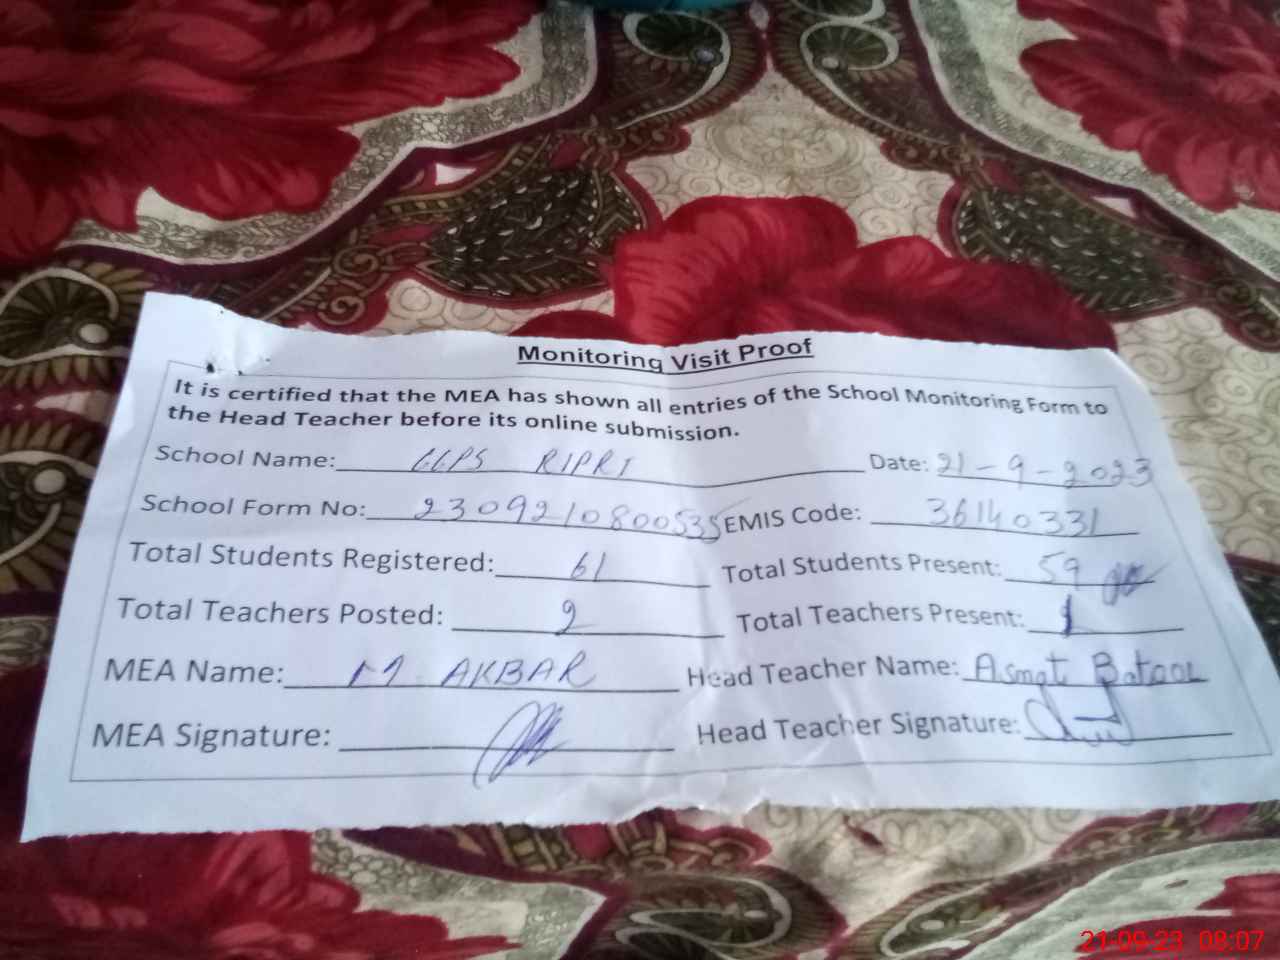 Monitoring Visit Proof
It is certified that the MEA has shown all entries of the School Monitoring Form to
the Head Teacher before its online submission.
School Name: GGPS RIPRI Date: 21-9-2023
School Form No: 230921080053535 EMIS Code: 36140331
Total Students Registered: 61 Total Students Present: 59
Total Teachers Posted: 2 Total Teachers Present: 1
MEA Name: M. AKBAR Head Teacher Name: Asmat Batool
MEA Signature: Head Teacher Signature:
21-09-23 08:07